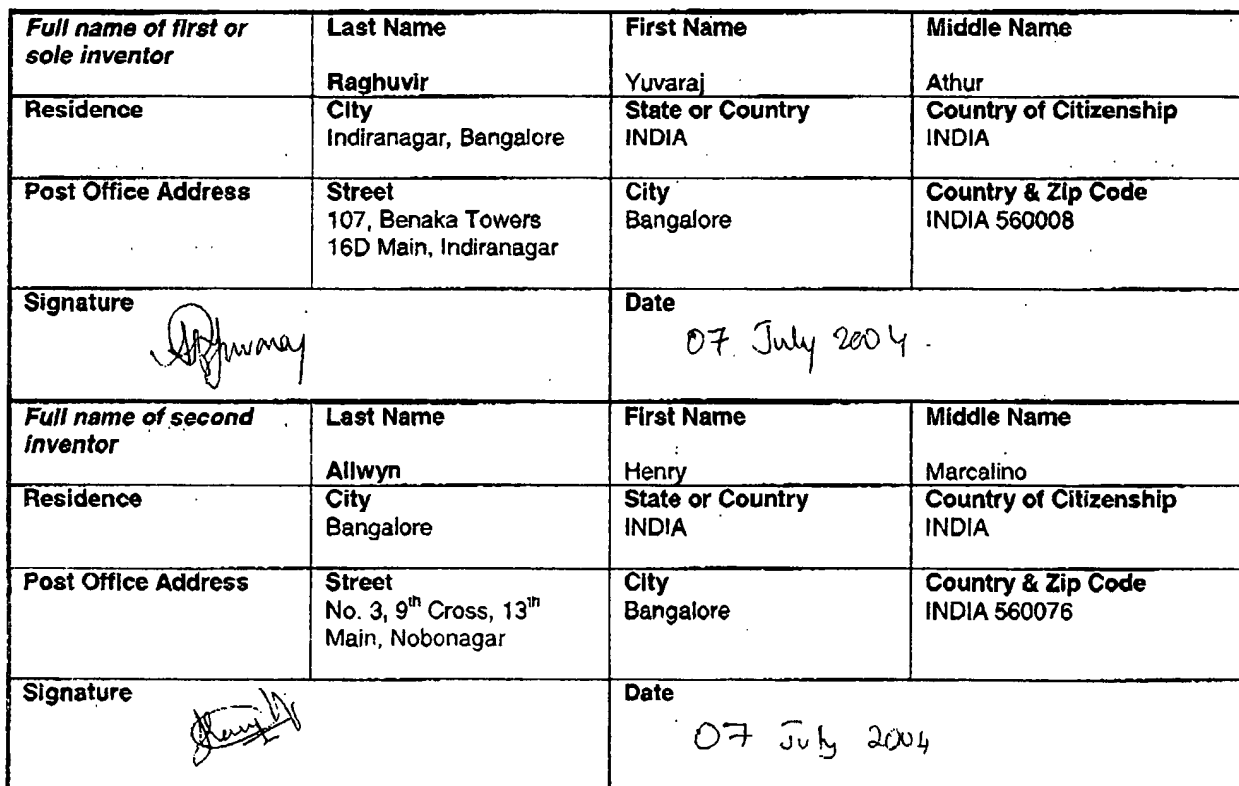 Full name of first or sole inventor
Last Name
Raghuvir
First Name
Yuvaraj
Middle Name
Athur
Residence
City
Indiranagar, Bangalore
State or Country
INDIA
Country of Citizenship
INDIA
Post Office Address
Street
107, Benaka Towers
16D Main, Indiranagar
City
Bangalore
Country & Zip Code
INDIA 560008
Signature
Date
07 July 2004.
Full name of second inventor
Last Name
Allwyn
First Name
Henry
Middle Name
Marcalino
Residence
City
Bangalore
State or Country
INDIA
Country of Citizenship
INDIA
Post Office Address
Street
No. 3, 9th Cross, 13th
Main, Nobonagar
City
Bangalore
Country & Zip Code
INDIA 560076
Signature
Date
07 July 2004